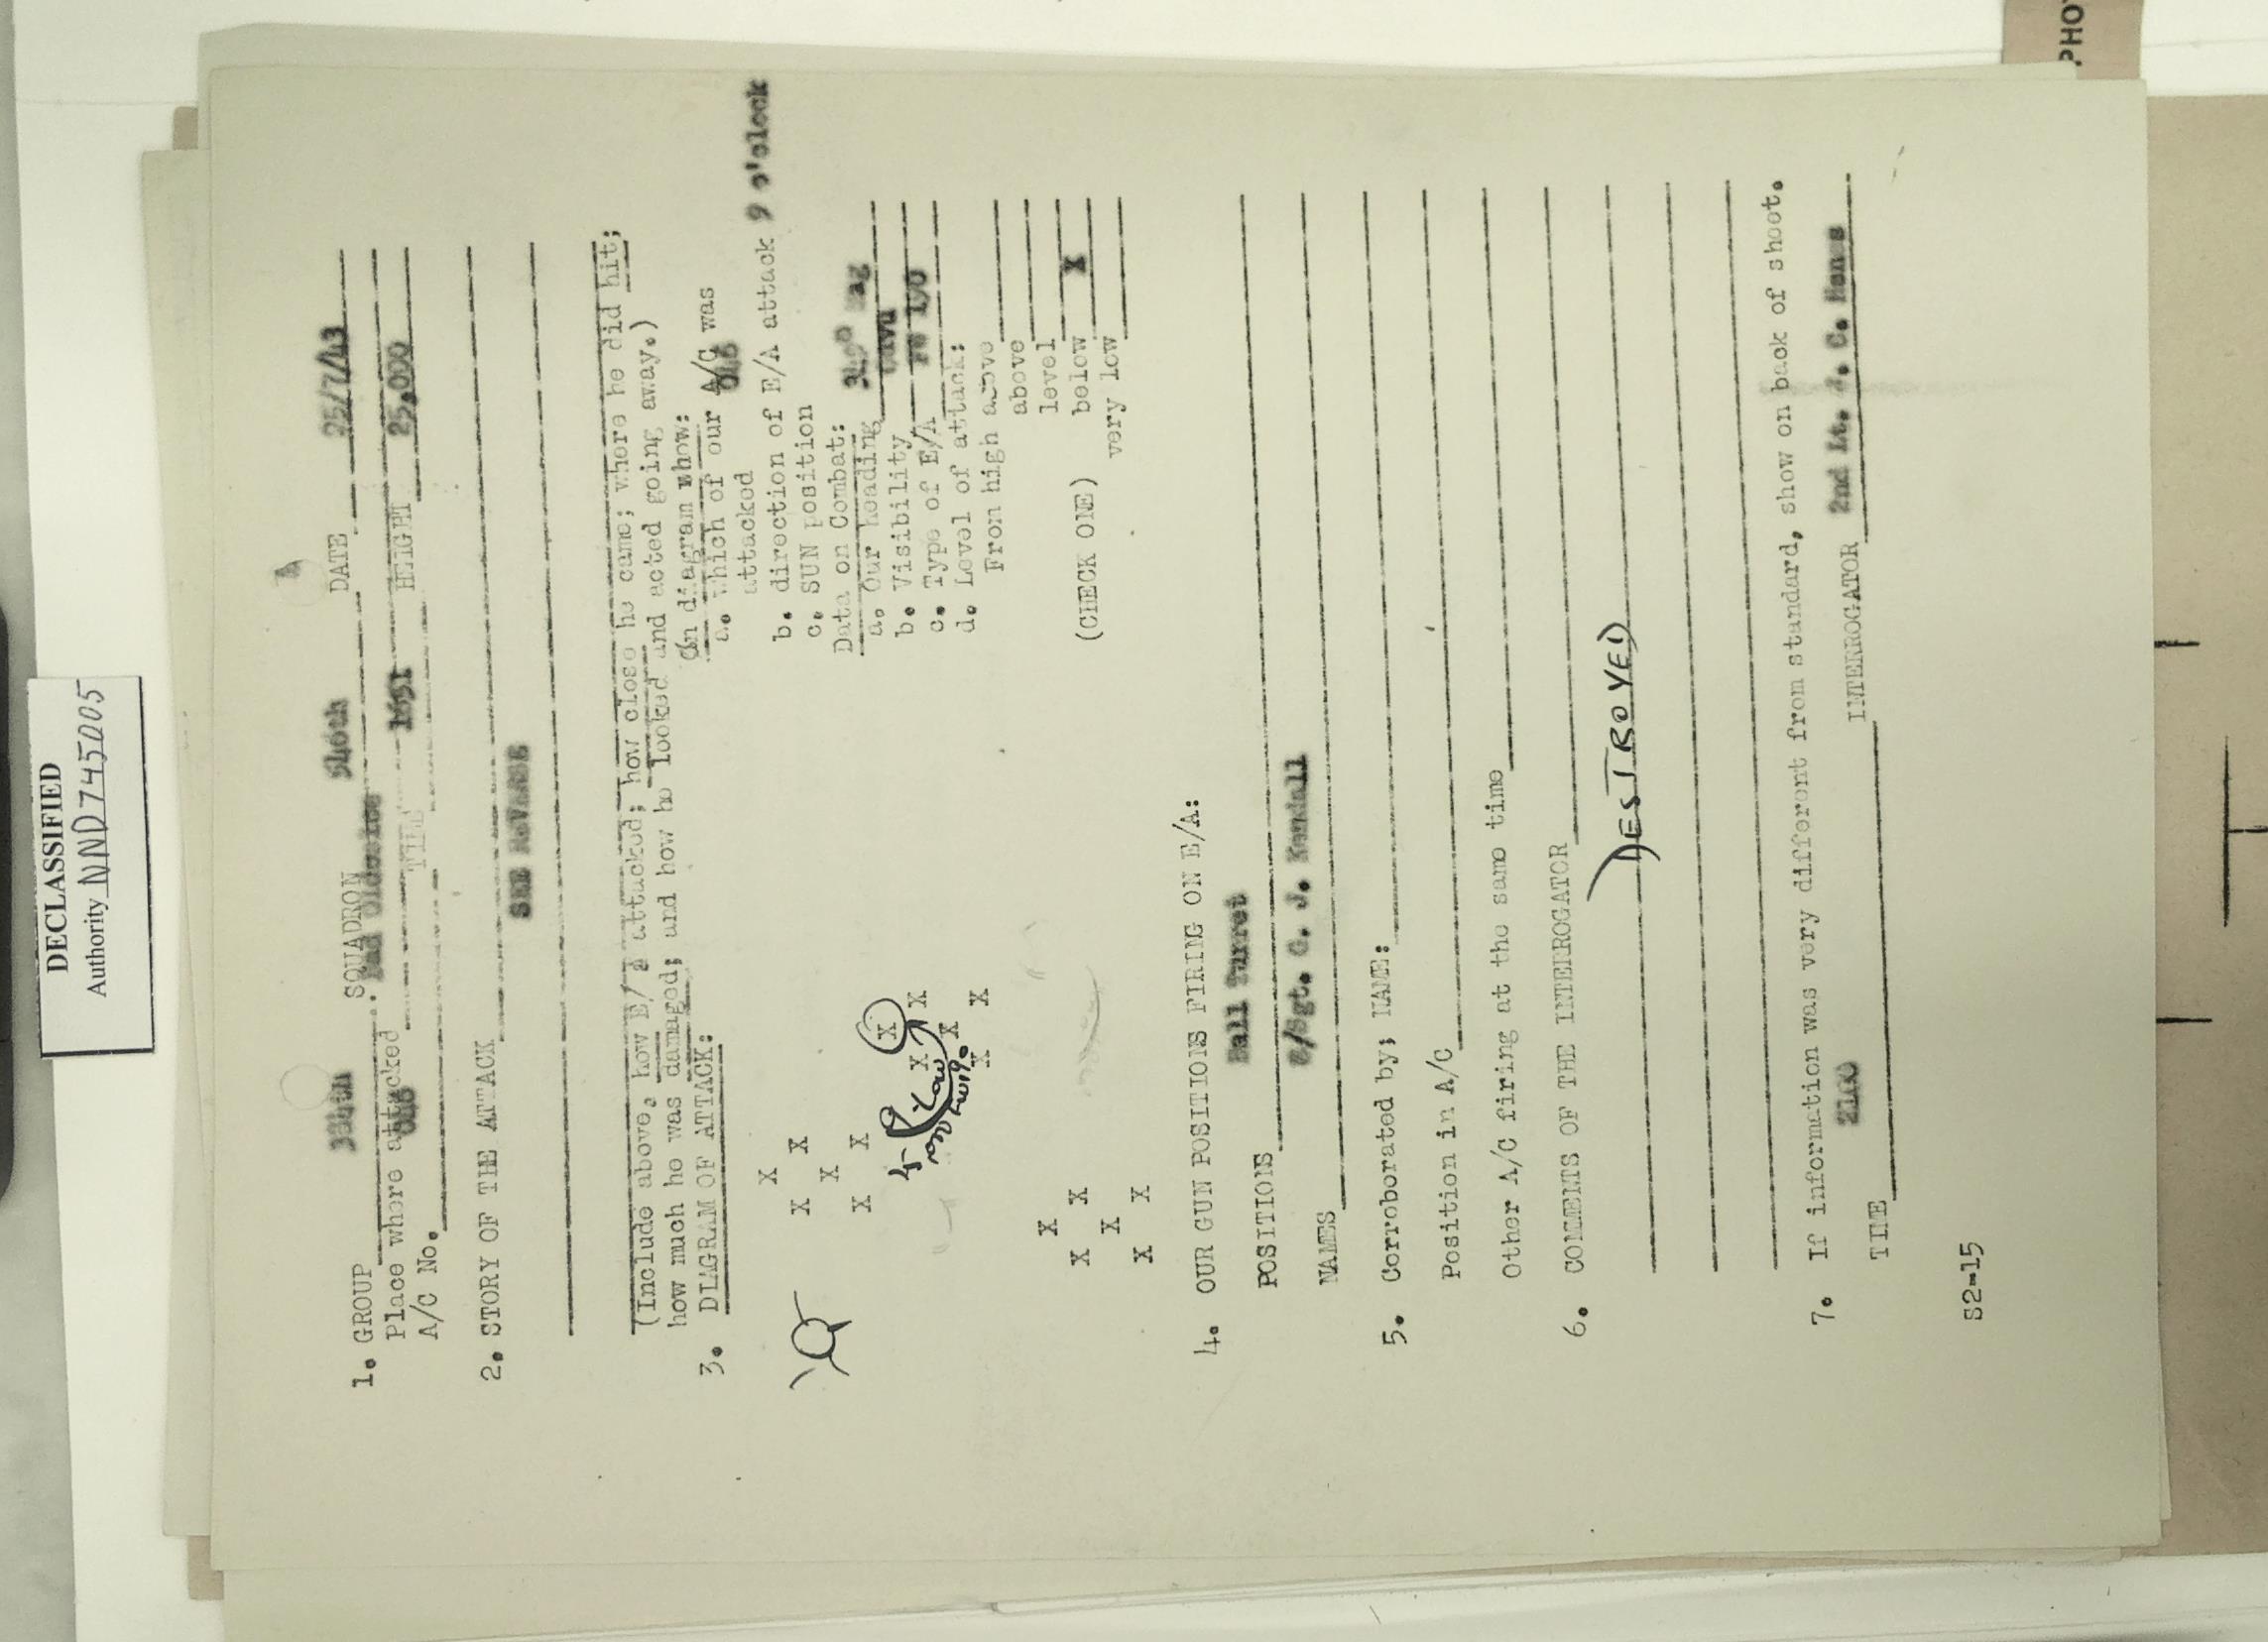 DECLASSIFIED
Authority NND745005
PHO
1. GROUP 384th SQUADRON 546th DATE 25/7/43
Place where attacked HEIGHT 25,000
A/C No. 046 TIME 1651
2. STORY OF THE ATTACK
SEE REVERSE
(Include above, how E/A attacked; how close he came; where he did hit;
how much he was damaged; and how he looked and acted going away.)
3. DIAGRAM OF ATTACK:
(On diagram show:
a. Which of our A/C was
attacked 046
b. direction of E/A attack 9 o'clock
c. SUN position
Data on Combat:
a. Our heading
b. Visibility
c. Type of E/A FW 190
d. Level of attack:
From high above
above
level
(CHECK ONE) below X
very low
X
X X
X
X X
X
X X
X
X X
Low
X
X X
X
X X
4. OUR GUN POSITIONS FIRING ON E/A:
POSITIONS Ball Turret
NAMES S/Sgt. G. J. Kendall
5. Corroborated by; NAME:
Position in A/C
Other A/C firing at the same time
6. COMMENTS OF THE INTERROGATOR
DESTROYED
7. If information was very different from standard, show on back of shoot.
TIME 2100 INTERROGATOR 2nd Lt. C.
S2-15